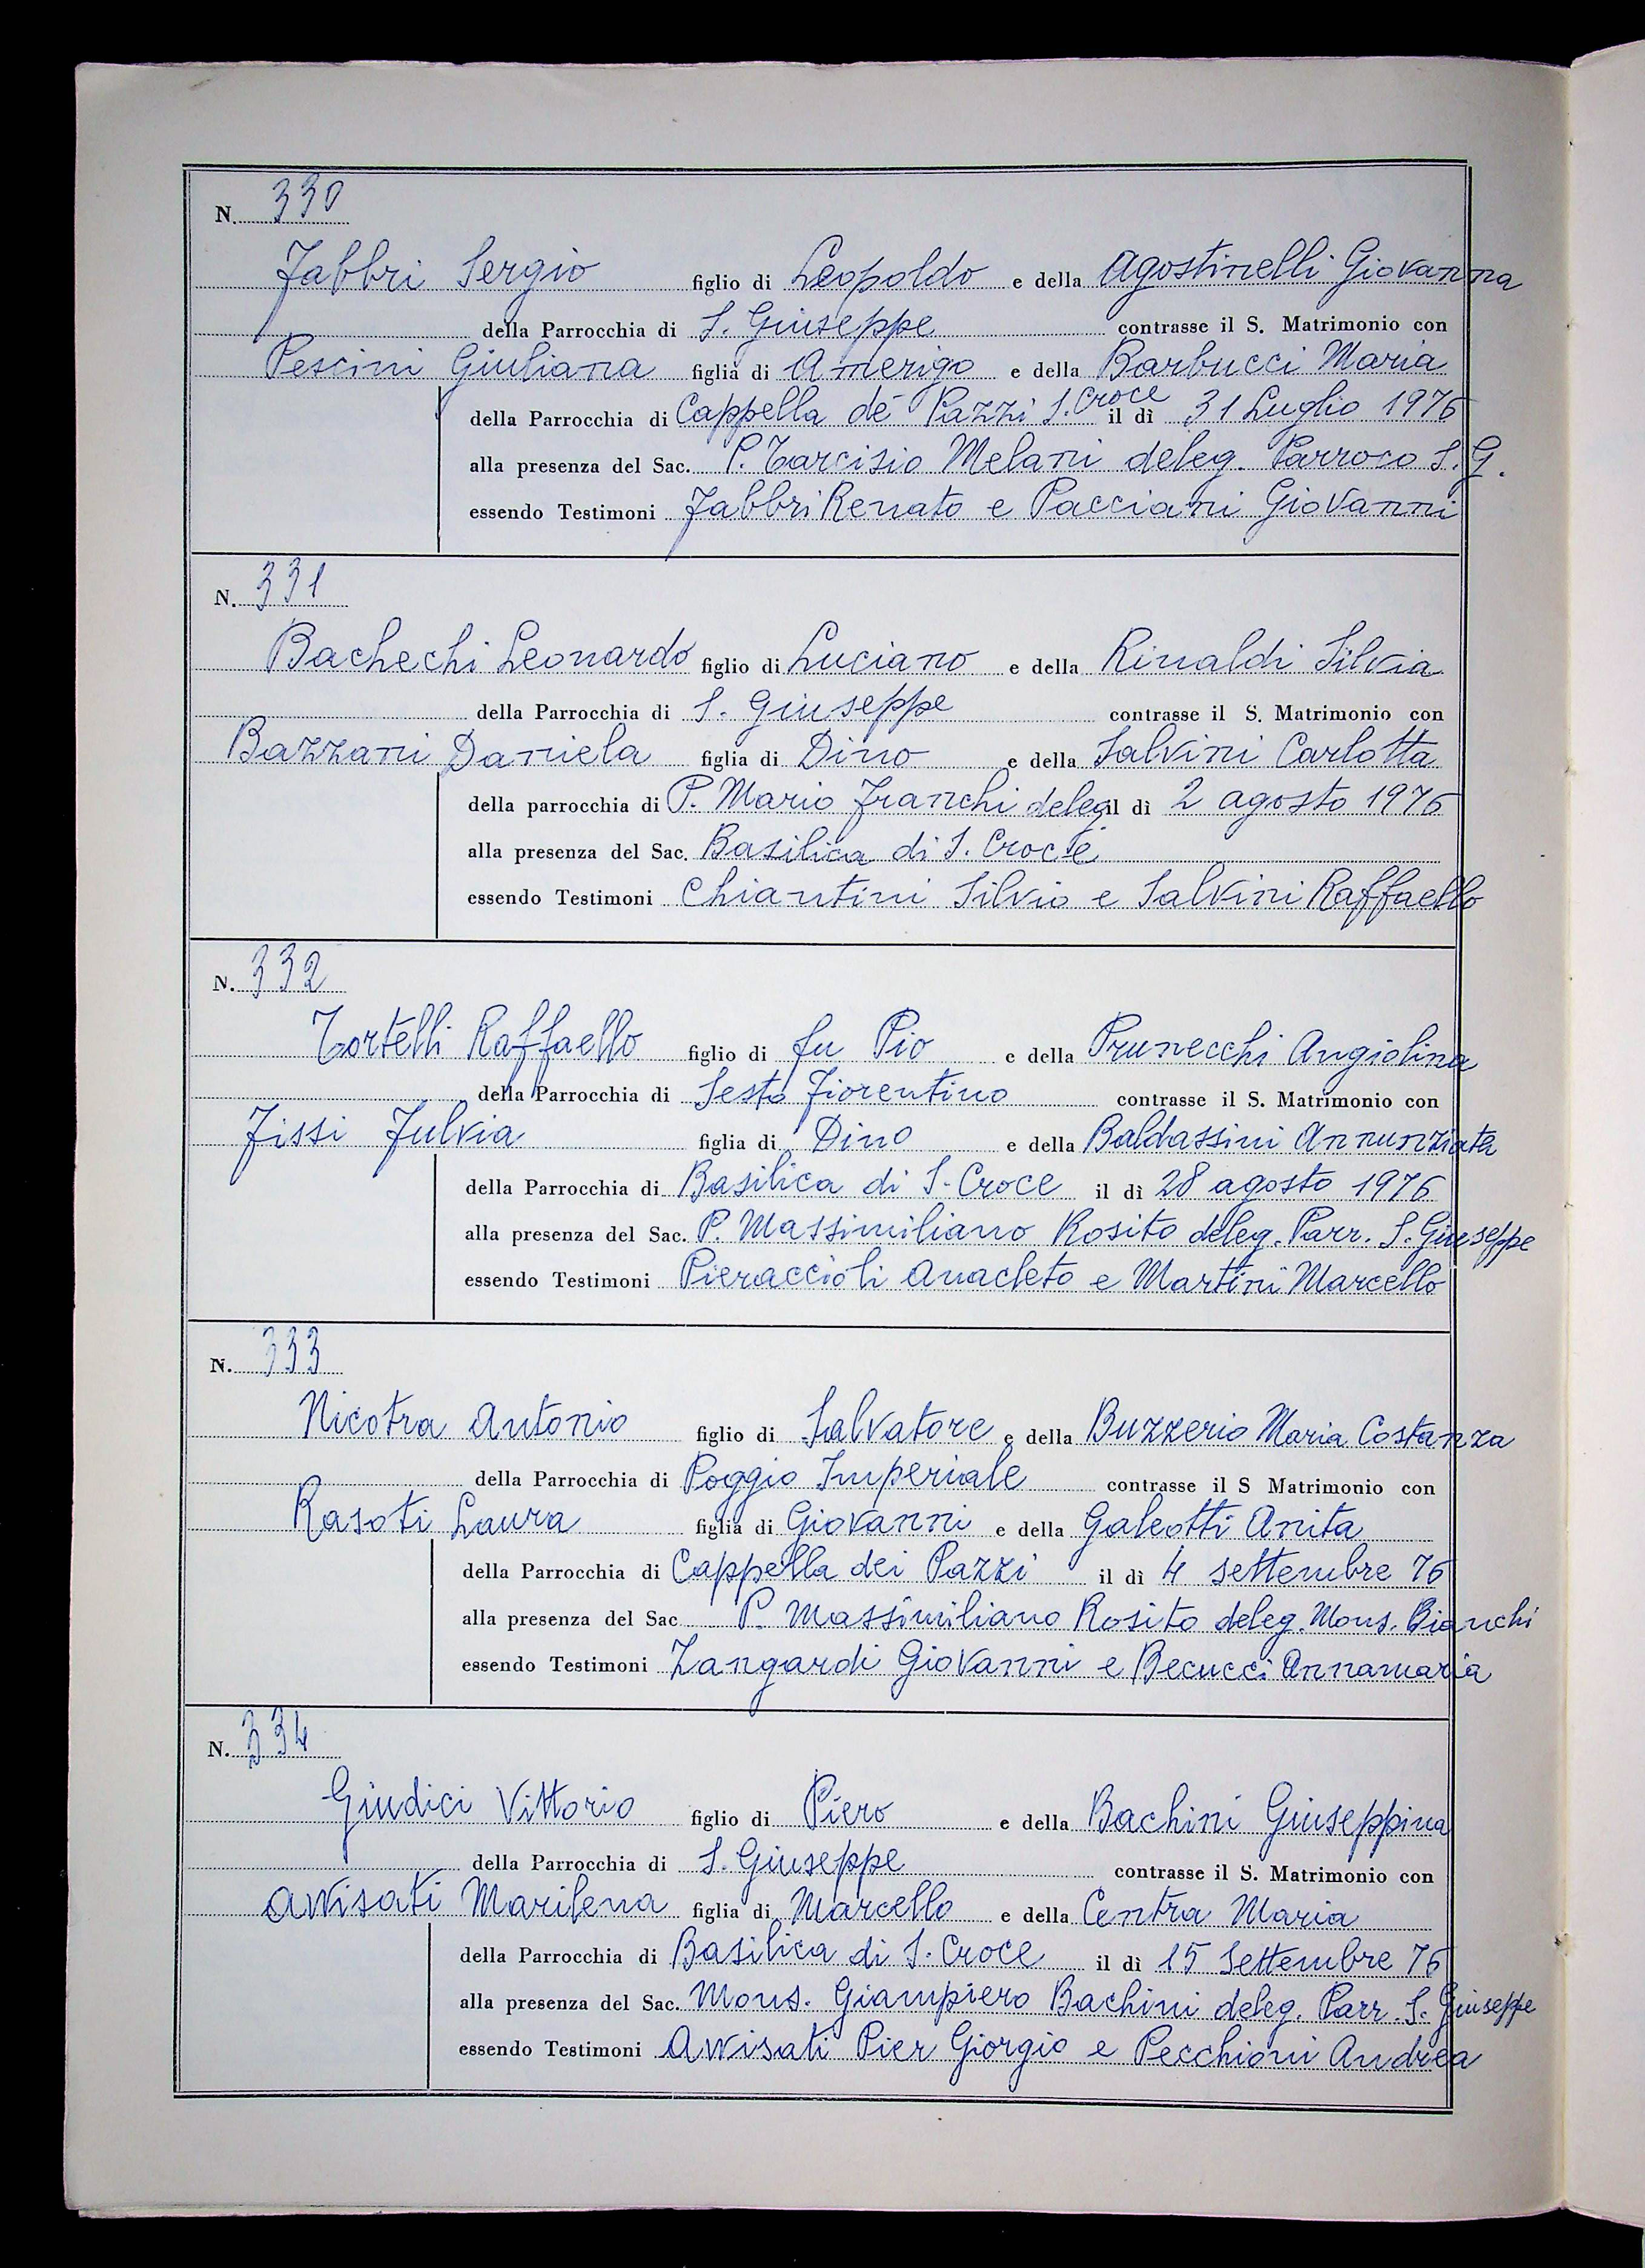 N. 330
Fabbri Sergio figlio di Leopoldo e della Agostinelli Giovanna
della Parrocchia di S. Giuseppe contrasse il S. Matrimonio con
Pescini Giuliana figlia di Amerigo e della Barbucci Maria
della Parrocchia di Cappella de' Pazzi S. Croce il dì 31 Luglio 1976
alla presenza del Sac. P. Tarcisio Melani deleg. Parroco S. G.
essendo Testimoni Fabbri Renato e Pacciani Giovanni
N. 331
Bachechi Leonardo figlio di Luciano e della Rinaldi Silvia
della Parrocchia di S. Giuseppe contrasse il S. Matrimonio con
Bazzani Daniela figlia di Dino e della Salvini Carlotta
della parrocchia di P. Mario Franchi deleg. il dì 2 agosto 1976
alla presenza del Sac. Basilica di S. Croce
essendo Testimoni Chiantini Silvio e Salvini Raffaello
N. 332
Tortelli Raffaello figlio di fu Pio e della Prunecchi Angiolina
della Parrocchia di Sesto Fiorentino contrasse il S. Matrimonio con
Fissi Fulvia figlia di Dino e della Baldassini Annunziata
della Parrocchia di Basilica di S. Croce il dì 28 agosto 1976
alla presenza del Sac. P. Massimiliano Rosito deleg. Parr. S. Giuseppe
essendo Testimoni Pieraccioli Anacleto e Martini Marcello
N. 333
Nicotra Antonio figlio di Salvatore e della Buzzerio Maria Costanza
della Parrocchia di Poggio Imperiale contrasse il S Matrimonio con
Rasoti Laura figlia di Giovanni e della Galeotti Anita
della Parrocchia di Cappella dei Pazzi il dì 4 settembre 76
alla presenza del Sac. P. Massimiliano Rosito deleg. Mons. Bianchi
essendo Testimoni Zangardi Giovanni e Becucci Annamaria
N. 334
Giudici Vittorio figlio di Piero e della Bachini Giuseppina
della Parrocchia di S. Giuseppe contrasse il S. Matrimonio con
Avvisati Marilena figlia di Marcello e della Centra Maria
della Parrocchia di Basilica di S. Croce il dì 15 Settembre 76
alla presenza del Sac. Mons. Giampiero Bachini deleg. Parr. S. Giuseppe
essendo Testimoni Avvisati Pier Giorgio e Pecchioni Andrea